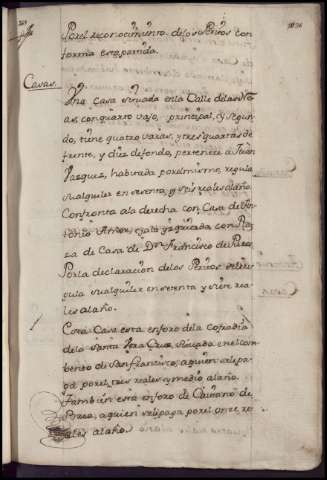 Por el reconocimiento de los Peritos con
forma esta partida.
Casas.
Una casa situada en la Calle de las
con quarto vajo, principal, y Segun
do, tiene quatro varas, y tres quartas de
frente, y diez de fondo, pertenece a Juan
Vazquez, habitada por el mismo, regula
su alquiler en sesenta, y seis reales al año.
Confronta a la derecha con Casa de An
tonio y a la izquierda con Pla
za de Casa de Dn. Francisco de
Por la declaración de los Peritos se re
gula su alquiler en sesenta y siete rea
les al año.
Esta Casa esta en foro de la Cofradia
de la Santa Vera Cruz, situada en el com
bento de San francisco, a quien se le pa
ga por el, tres reales y medio al año.
Tambien esta en foro de Caietano de
a quien se le paga por el, onze re
ales al año.